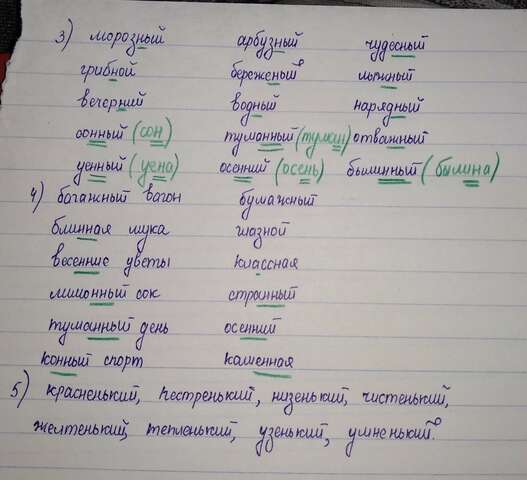 3) морозный арбузный чудесный
грибной бережный лыжный
вечерний водный нарядный
сонный (сон) туманный (туман) отважный
ценный (цена) осенний (осень) былинный (былина)
4) багажный вагон бумажный
блинная мука глазной
весенние цветы классная
лимонный сок странный
туманный день осенний
конный спорт каменная
5) красненький, пёстренький, низенький, чистенький,
желтенький, тепленький, узенький, умненький.